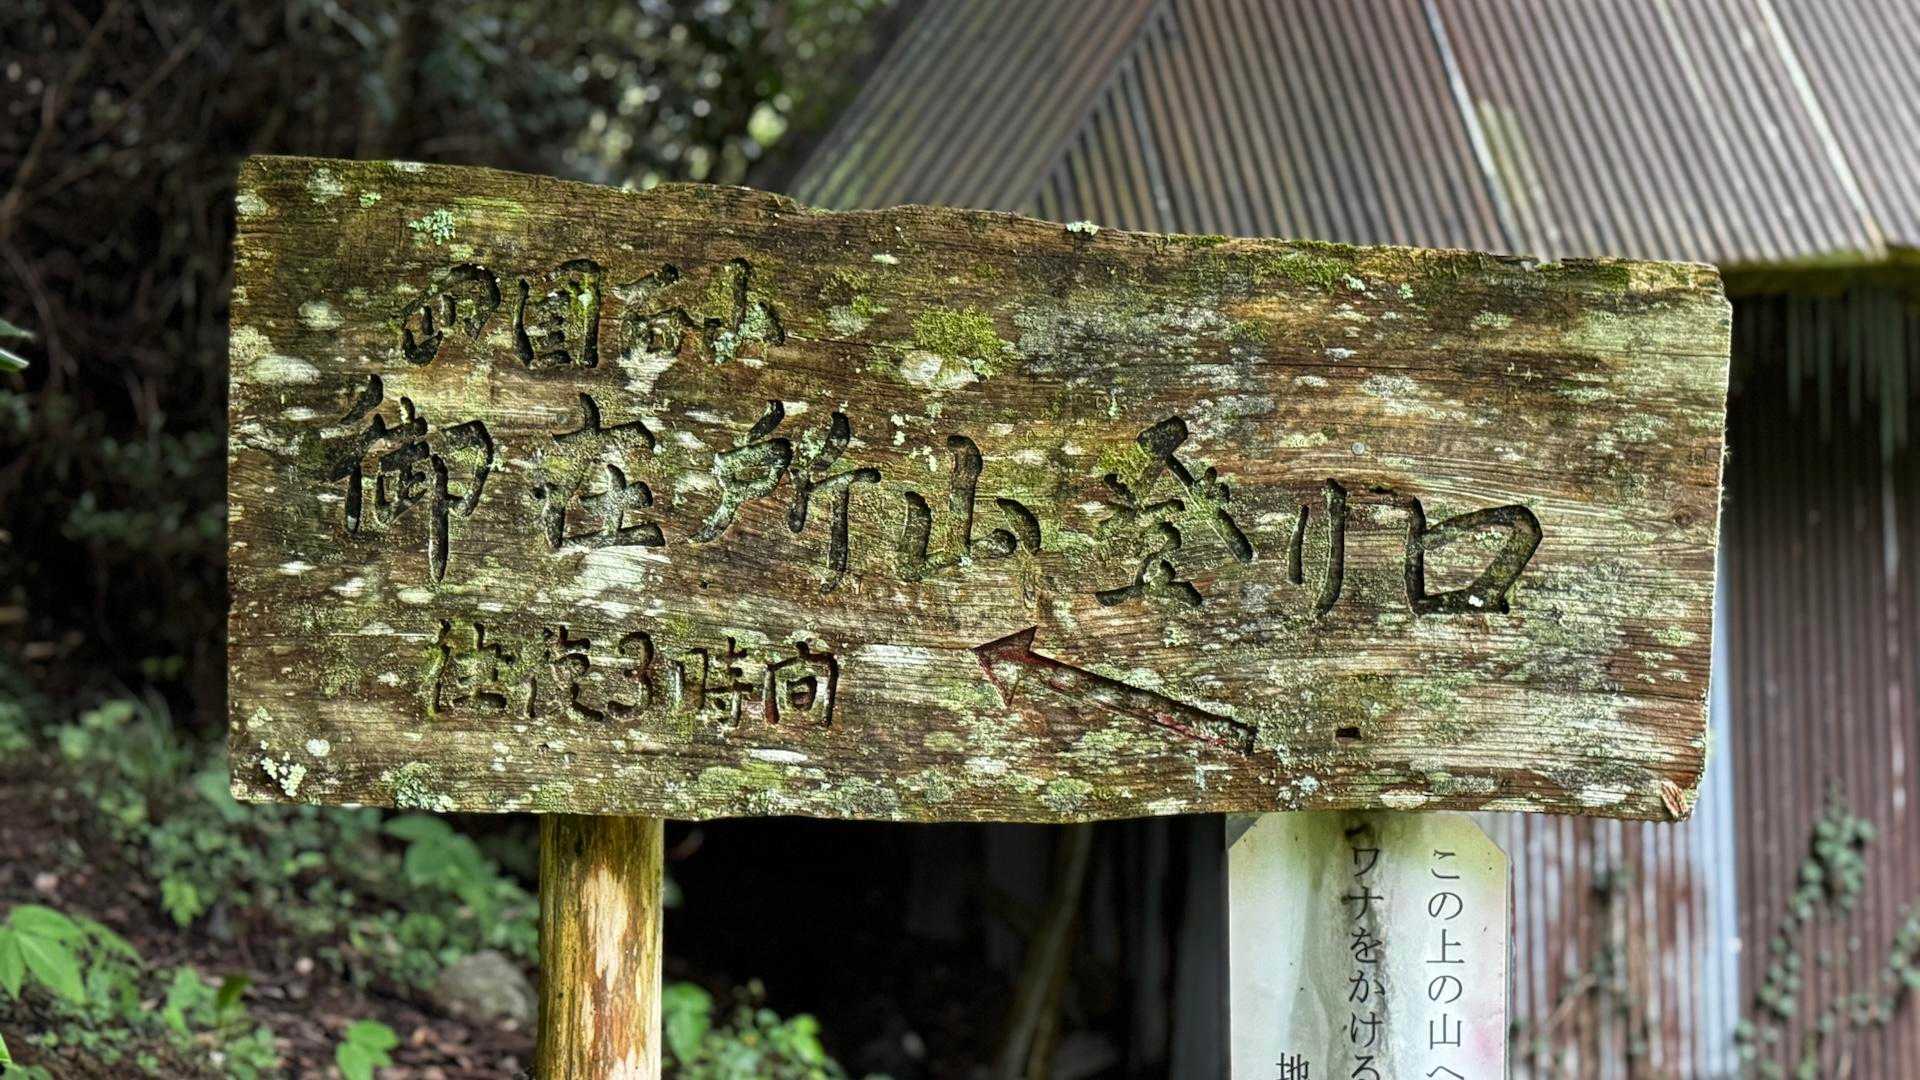 四国百山
御在所山登り口
往復3時間
この上の山へ
ワナをかける
地